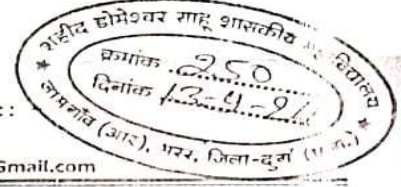 शहीद डोमेश्वर साहू शासकीय
क्रमांक 250
दिनांक 13-4-21
जामगाँव (आर), भरर, जिला-दुर्ग
Gmail.com